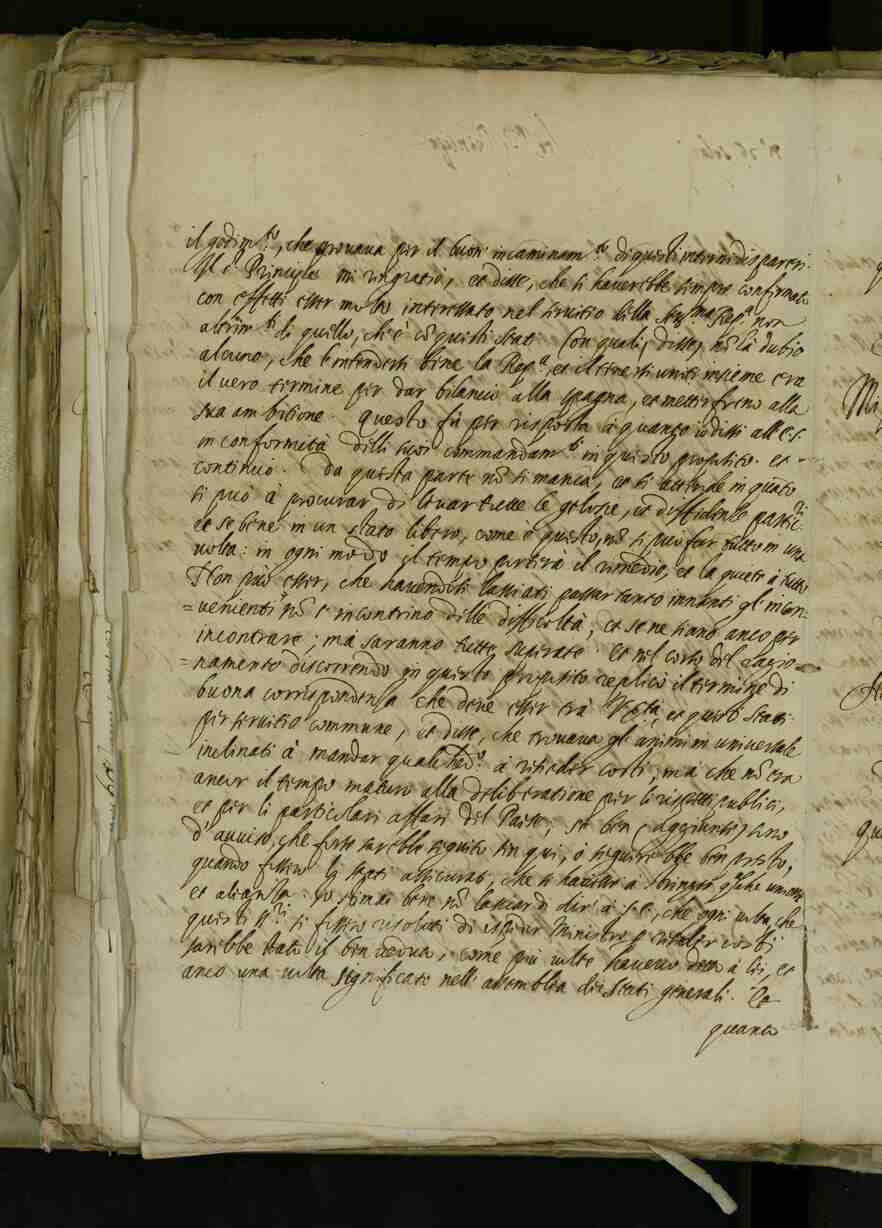 il godim.to, che provava per il buon incaminam.to di questi interni dispareri.
Il s.r Principe mi ringratiò, et disse, che si haverebbe sempre confirmato
con effetti esser molto interessato nel servitio della Ser.ma Rep.a non
altrim.ti di quello, ch'è cō questi stati. Con quali, disse, nō v'hà dubio
alcuno, che l'intendersi bene la Rep.a, et il tenersi uniti insieme era
il vero termine per dar bilancio alla spagna, et metter freno alla
sua ambitione. Questo fù per risposta à quanto io dissi all'ec.
in conformità delli suoi commandam.ti in questo proposito. et
continuò. Da questa parte nō si manca, et si attende in q̄nto
si può à procurar di levar tutte le gelosie, et diffidenze
et se bene in un stato libero, come è questo, nō si può far tutto in una
volta: in ogni modo il tempo porterà il rimedio, et la quiete à tutto
Non può esser, che havendosi lassiati passar tanto innanti gl'incon=
=venienti nō s'incontrino delle difficoltà, et se ne siano anco per
incontrare; mà saranno tutte superate. Et nel corso del ragio=
=namento discorrendo in questo proposito replicò il termine di
buona corrispondenza che deve esser trà V. Ser.tà, et questi Stati
per servitio commune, et disse, che trovava gl'animi in universale
inclinati à mandar qualched.o à risieder costì, mà che nō era
ancor il tempo maturo alla deliberatione per li rispetti publici,
et per li particolari affari del Paese; se ben (aggiunse) sono
d'avviso, che forse sarebbe seguito sin quì, ò seguirebbe ben presto,
quando fossero gli stati assicurati, che si havesse à stringer q̄lche unione
et alianza. Io stimai bene nō lasciar di dir à s. e., che ogni volta, che
questi ss.ri si fossero risoluti di espedir Ministro per riseder costì
sarebbe stato il ben veduto, come più volte havevo detto à lei, et
anco una volta significato nell'assemblea dei Stati generali. Et
quanto